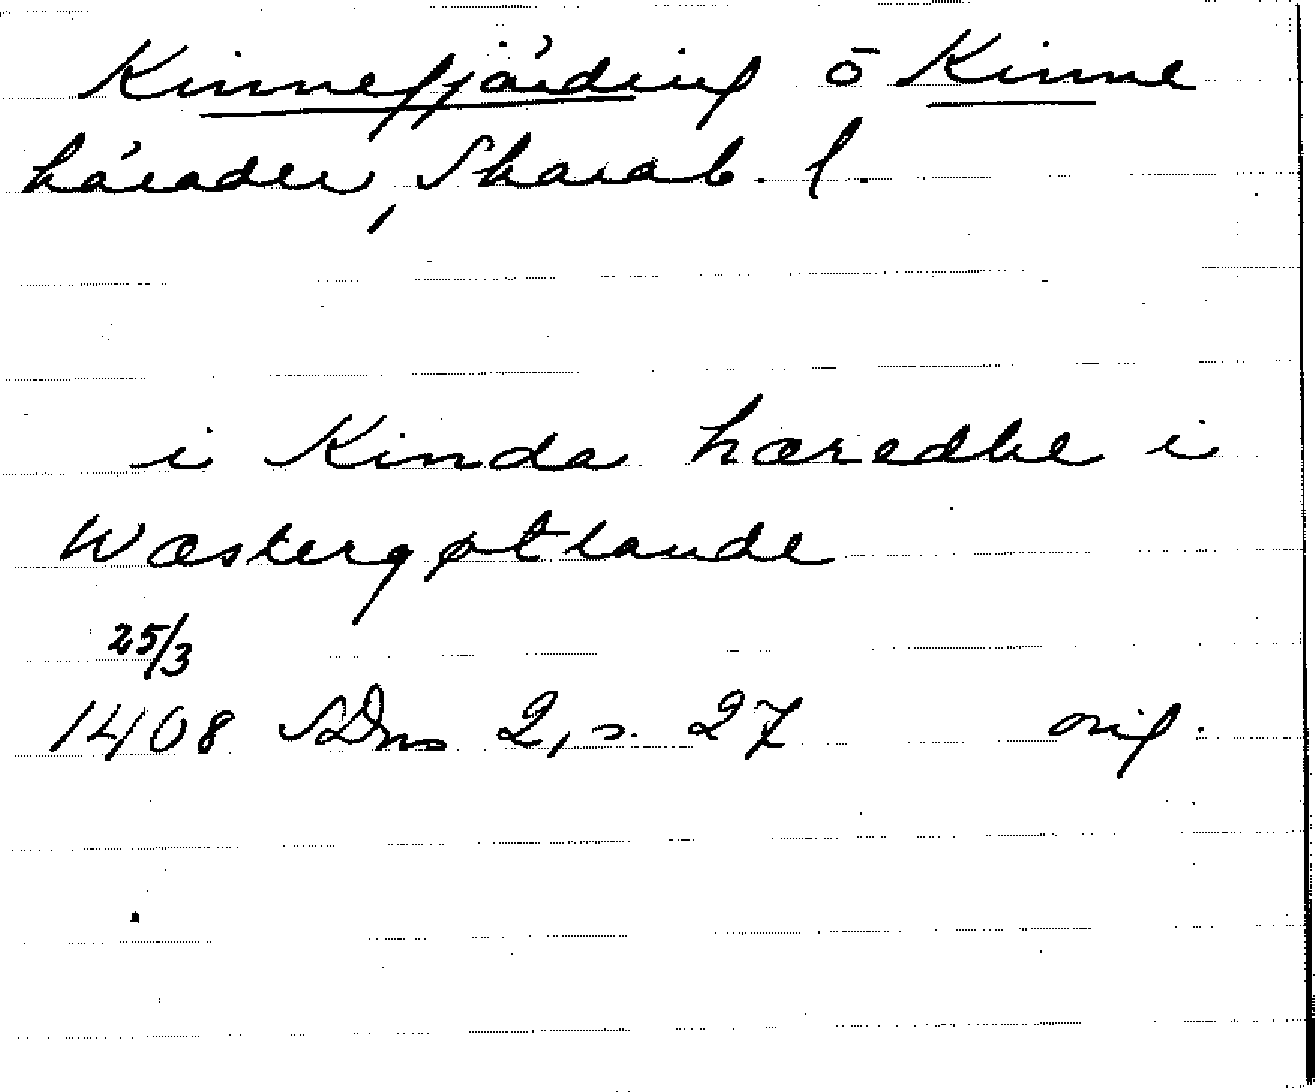 Kinnefjärding o Kinne
härader, Skarab. l.
i Kinda hæredhe i
Wæstergøtlande
25/3
1408 SDns 2, s. 27 orig.